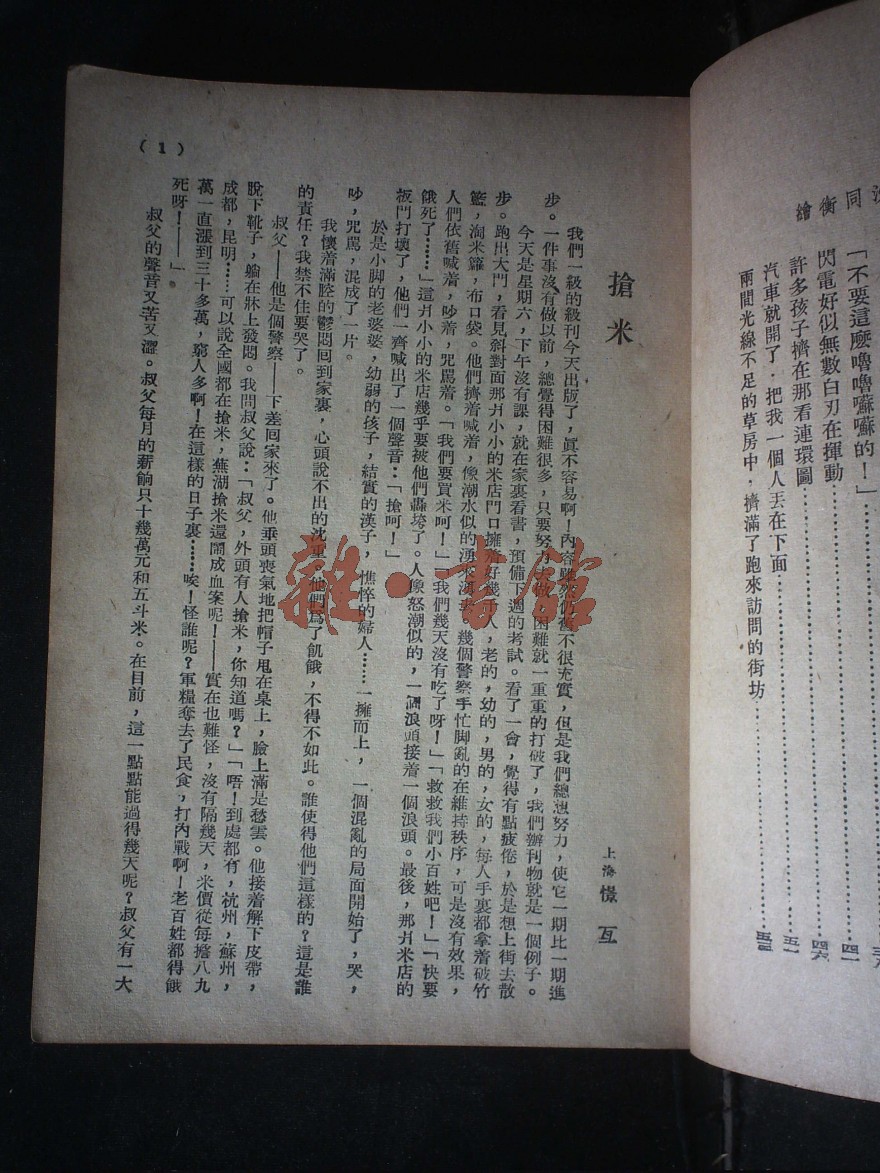 同
衡
繪
「不要這麽嚕嚕囌囌的！」
閃電好似無數白刃在揮動
許多孩子擠在那看連環圖
汽車就開了，把我一個人丟在下面
兩間光線不足的草房中，擠滿了跑來訪問的街坊
四一
四六
五一
搶米
上海 憬 互
我們一級的級刊今天出版了，眞不容易啊！內容雖然仍舊不很充實，但是我們總想努力，使它一期比一期進
步。一件事沒有做以前，總覺得困難很多，只要努力去做，困難就一重重的打破了，我們辦刊物就是一個例子。
今天是星期六，下午沒有課，就在家裏看書，預備下週的考試。看了一會，覺得有點疲倦，於是想上街去散
步。跑出大門，看見斜對面那爿小小的米店門口擁着好幾千人，老的，幼的，男的，女的，每人手裏都拿着破竹
籃，淘米籮，布口袋。他們擠着喊着，像潮水似的湧來湧去，幾個警察手忙脚亂的在維持秩序，可是沒有效果，
人們依舊喊着，吵着，咒罵着。「我們要買米呵！」「我們幾天沒有吃了呀！」「救救我們小百姓吧！」「快要
餓死了……」這爿小小的米店幾乎要被他們轟垮了。人像怒潮似的，一個浪頭接着一個浪頭。最後，那爿米店的
板門打壞了，他們一齊喊出了一個聲音：「搶呵！」
於是小脚的老婆婆，幼弱的孩子，結實的漢子，憔悴的婦人……一擁而上，一個混亂的局面開始了，哭，
吵，咒罵，混成了一片。
我懷着滿腔的鬱悶囘到家裏，心頭說不出的沈重。他們爲了飢餓，不得不如此。誰使得他們這樣的？這是誰
的責任？我禁不住要哭了。
叔父——他是個警察——下差囘家來了。他垂頭喪氣地把帽子甩在桌上，臉上滿是愁雲。他接着解下皮帶，
脫下靴子，躺在牀上發悶。我問叔父說：「叔父，外頭有人搶米，你知道嗎？」「唔！到處都有，杭州，蘇州，
成都，昆明……可以說全國都在搶米，蕪湖搶米還鬧成血案呢！——實在也難怪，沒有隔幾天，米價從每擔八九
萬一直漲到三十多萬，窮人多啊！在這樣的日子裏……唉！怪誰呢？軍糧奪去了民食，打內戰啊！老百姓都得餓
死呀！——」。
叔父的聲音又苦又澀。叔父每月的薪餉只十幾萬元和五斗米。在目前，這一點點能過得幾天呢？叔父有一大
(1)
雜·書館